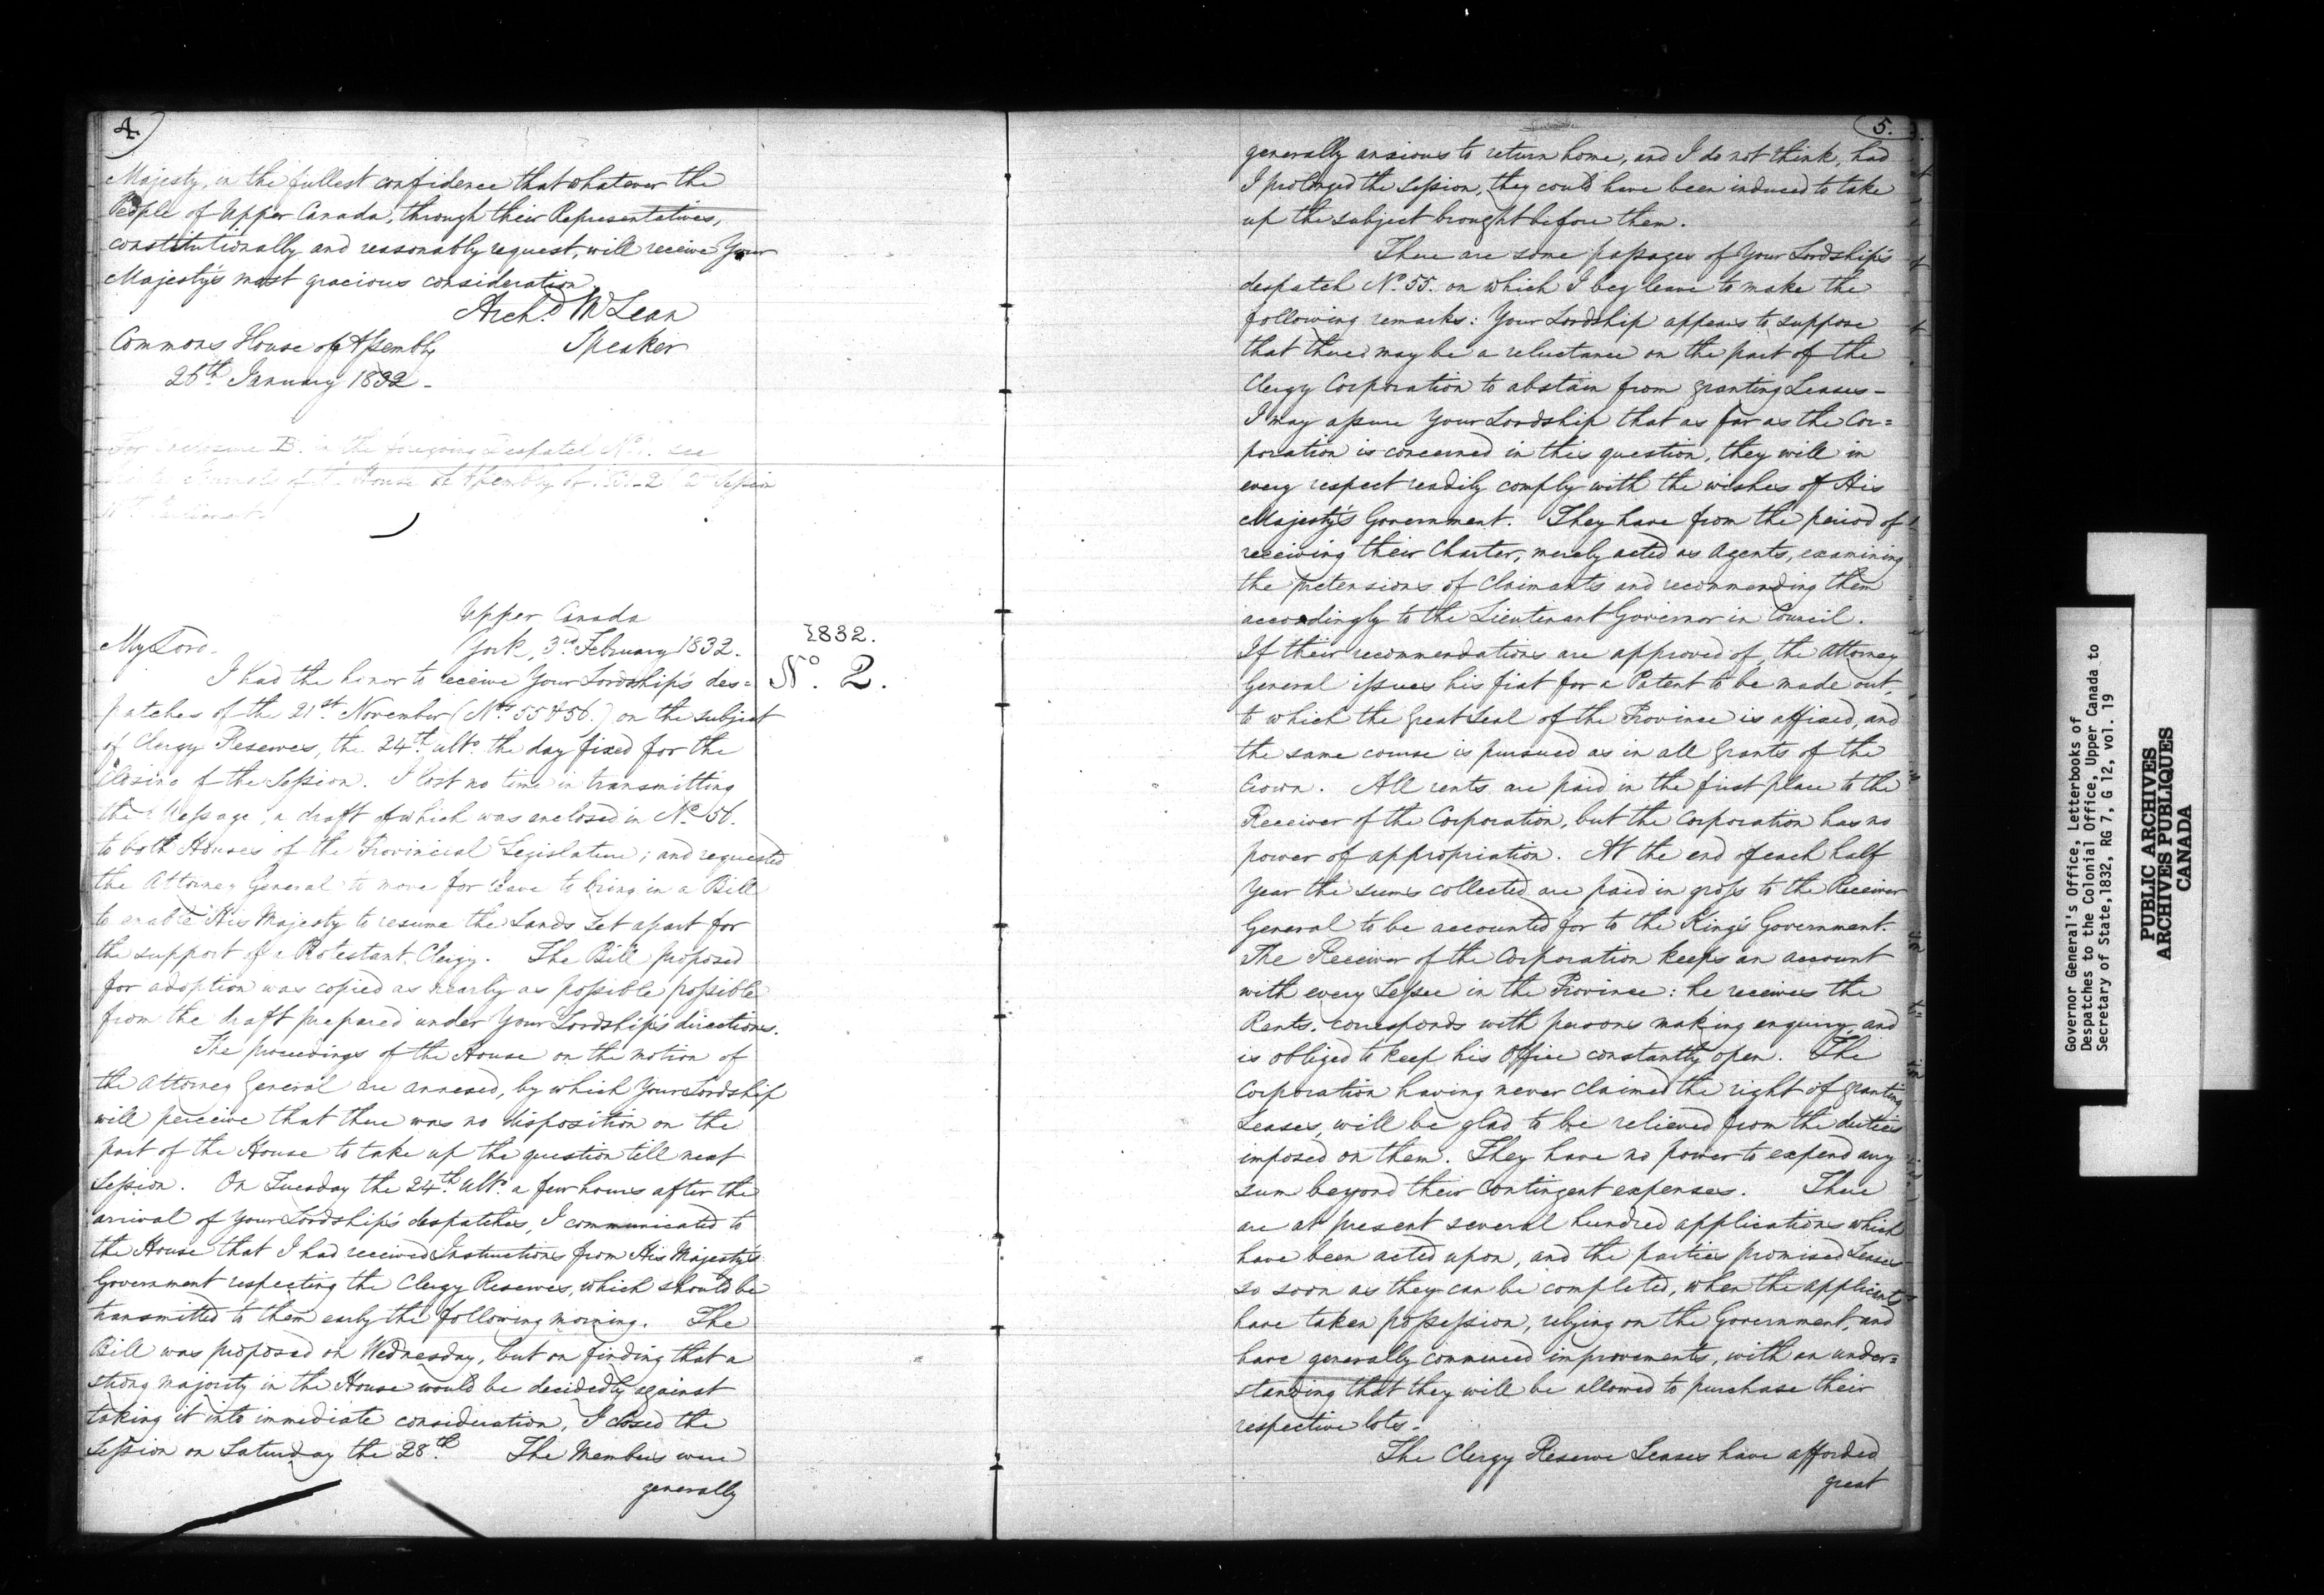 4.
Majesty, in the fullest confidence that whatever the
People of Upper Canada, through their Representatives,
constitutionally and reasonably request, will receive Your
Majesty's most gracious consideration
Archd McLean
Commons House of Assembly Speaker
26th January 1832 -
For Enclosure B. in the foregoing Despatch No. 1. see
Journals of the House of Assembly of Session
Upper Canada
My Lord. York, 3rd February 1832.
1832.
No. 2.
I had the honor to receive Your Lordship's des=
patches of the 21st November (Nos 55 & 56.) on the subject
of Clergy Reserves, the 24th ulto. the day fixed for the
closing of the Session. I lost no time in transmitting
the Message, a draft of which was enclosed in No 56.
to both Houses of the Provincial Legislature; and requested
the Attorney General to move for leave to bring in a Bill
to enable His Majesty to resume the Lands set apart for
the support of a Protestant Clergy. The Bill proposed
for adoption was copied as nearly as possible possible
from the draft prepared under Your Lordship's directions.
The proceedings of the House on the motion of
the Attorney General are annexed, by which Your Lordship
will perceive that there was no disposition on the
part of the House to take up the question till next
Session. On Tuesday the 24th ulto. a few hours after the
arrival of Your Lordship's despatches, I communicated to
the House that I had received Instructions from His Majesty's
Government respecting the Clergy Reserves, which should be
transmitted to them early the following morning. The
Bill was proposed on Wednesday, but on finding that a
strong majority in the House would be decidedly against
taking it into immediate consideration, I closed the
Session on Saturday the 28th. The Members were
generally
5.
generally anxious to return home, and I do not think, had
I prolonged the Session, they could have been induced to take
up the subject brought before them.
There are some passages of Your Lordship's
despatch No. 55. on which I beg leave to make the
following remarks: Your Lordship appears to suppose
that there may be a reluctance on the part of the
Clergy Corporation to abstain from granting Leases -
I may assure Your Lordship that as far as the Cor=
poration is concerned in this question, they will in
every respect readily comply with the wishes of His
Majesty's Government. They have from the period of
receiving their Charter, merely acted as Agents, examining
the pretensions of Claimants and recommending them
accordingly to the Lieutenant Governor in Council.
If their recommendations are approved of, the Attorney
General issues his fiat for a Patent to be made out,
to which the Great Seal of the Province is affixed, and
the same course is pursued as in all Grants of the
Crown. All rents are paid in the first place to the
Receiver of the Corporation, but the Corporation has no
power of appropriation. At the end of each half
Year the sums collected are paid in gross to the Receiver
General to be accounted for to the King's Government.
The Receiver of the Corporation keeps an account
with every Lessee in the Province: he receives the
Rents, corresponds with persons making enquiry, and
is obliged to keep his Office constantly open. The
Corporation having never claimed the right of granting
Leases, will be glad to be relieved from the duties
imposed on them. They have no power to expend any
sum beyond their Contingent expenses. There
are at present several hundred applications which
have been acted upon, and the parties promised Leases
so soon as they can be completed, when the applicants
have taken possession, relying on the Government, and
have generally commenced improvements, with an under=
standing that they will be allowed to purchase their
respective lots.
The Clergy Reserve Leases have afforded
great
Governor General's Office, Letterbooks of
Despatches to the Colonial Office, Upper Canada to
Secretary of State,1832, RG 7, G 12, vol. 19
PUBLIC ARCHIVES
ARCHIVES PUBLIQUES
CANADA